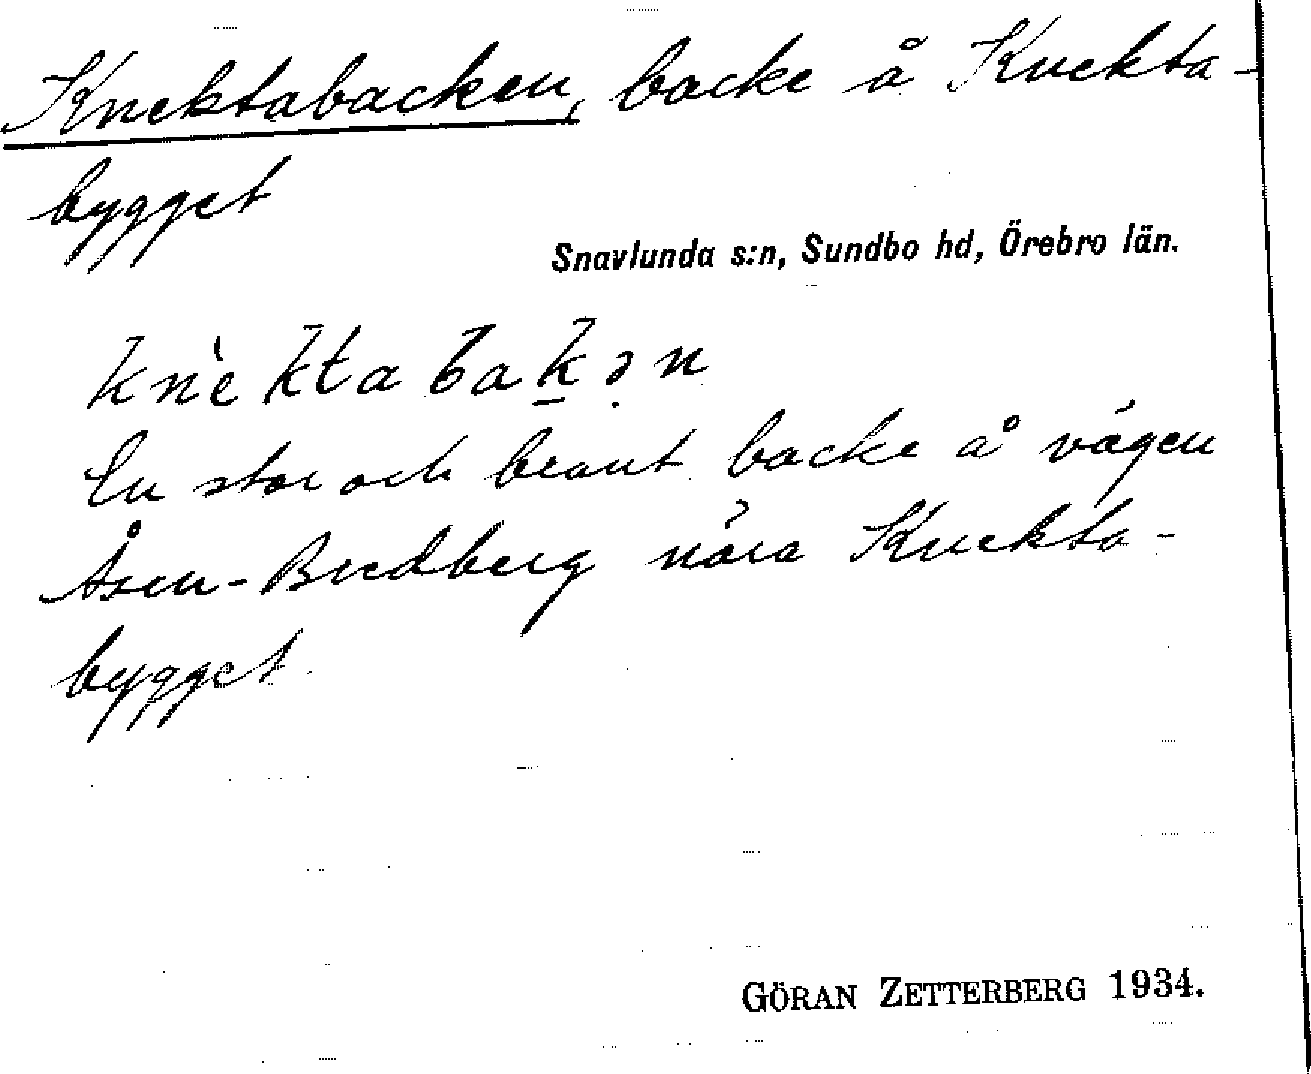 Knektabacken, backe å Knekta-
bygget
Snavlunda s:n, Sundbo hd, Örebro län.
knèktabak̠ə̣n
En stor och brant backe å vägen
Åsen-Bredberg nära Knekta-
bygget
GÖRAN ZETTERBERG 1934.